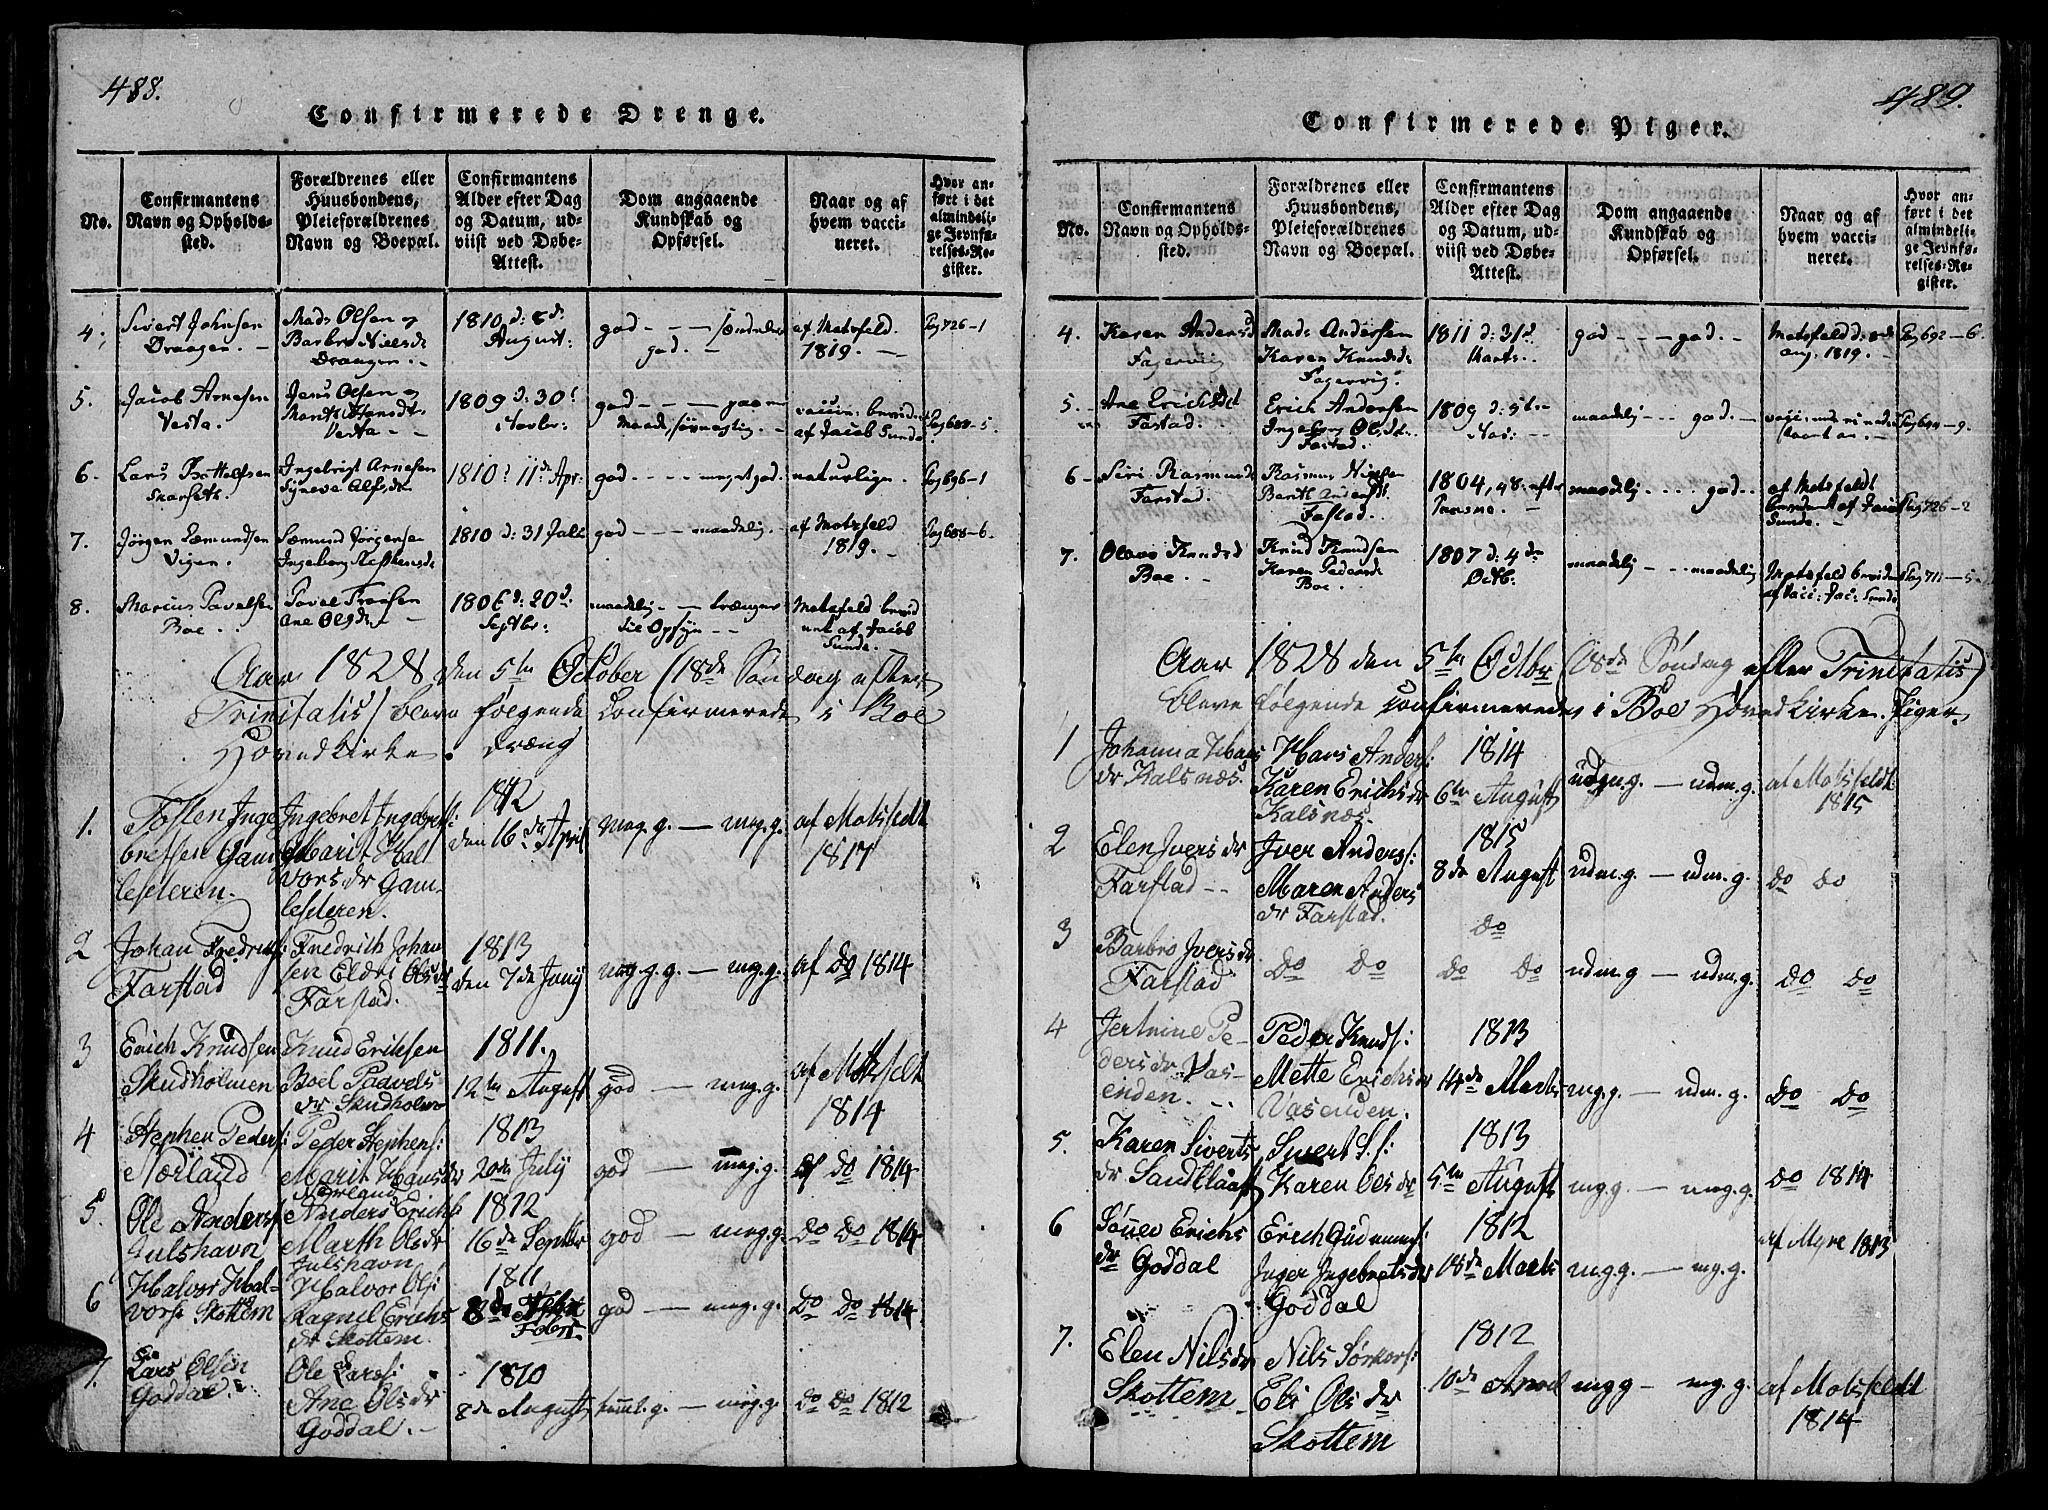 488.
Confirmerede Drenge.
No.
Confirmantens
Navn og Opholds-
sted.
Forældrenes eller
Huusbondens,
Pleieforældrenes
Navn og Boepæl.
Confirmantens
Alder efter Dag
og Datum, ud-
viist ved Døbe-
Attest.
Dom angaaende
Kundskab og
Opførsel.
Naar og af
hvem vacci-
neret.
Hvor an-
ført i det
almindeli-
ge Jevnfø-
relses-Re-
gister.
4.
Sivert Johnsen
Draagen. -
Mads Olsen og
Barbro Nielsd
Draagen -
1810 d: 8d:
August:
god - - -
god. -
af Motzfeld.
1819. -
Pag 726-1
5.
Jacob Arnesen
Vesta.
Jens Olsen og
Vesta - -
1809 d: 30t
Novbr:
god - - -
af Jacob Sunde
Pag 688-5.
6.
Lars
Ingebrigt Arnesen
Syneve Olsdr
1810: 11d Apr:
god - - - - meget god.
naturlige.
Pag 696-1
7.
Jørgen Sæmundsen
Vigen.
Sæmund Jørgensen
Ingeborg
1810 d: 31 Juli
god - - - maadelig
af Motzfeld
1819. -
Pag 688-6.
8.
Marius Pavelsen
Boe. -
Pavel
Ane Olsdr -
1806 d: 20d:
Septbr:
maadelig - - trænger
til Opsyn - -
Motzfeld bevid
net af Jacob
Sunde.
Aar 1828 den 5te October (18de Søndag efter
Trinitatis) bleve følgende Confirmerede i Boe
Hovedkirke. Dræng
1.
Tosten Inge
bretsen Gam
lesæteren.
Ingebret Ingebrets:
Marit Hal
vors dr Gam-
lesæteren.
1812
den 16de April
meg. g. - meg. g.
af Motsfeldt
1817
2
Johan Fredrichs:
Farstad
Fredrich Johan
sen Eldri Ols dr
Farstad.
1813
den 7de Juny
meg. g. g. - meg. g.
af do 1814
3
Erich Knudsen
Skudholmen
Knud Eriksen
Boel Paavels
dr Skudholm
1811.
12te August
god - meg. g.
af Motsfeldt
1814
4
Stephen Peders:
Nørland
Peder Stephens:
Marit Hans dr
Nørland
1813
20de July
god - meg. g.
af do 1814
5.
Ole Anders:
Julshavn
Anders Erichs:
Marth Ols dr
Julshavn
1812
16de Septbr
god - meg. g.
do do 1814
6
Halvor Hal-
vors: Skottem
Halvor Ols:
Ragnel Erichs
dr Skottem.
1811
8de
Febr.
god - meg. g.
do do 1814
7.
Lars Olsen
Goddal.
Ole Lars:
Ane Ols dr
Goddal. -
1810
8de August
g. - meg. g.
do do 1812
489.
Confirmerede Piger.
No.
Confirmantens
Navn og Opholds-
sted.
Forældrenes eller
Huusbondens,
Pleieforældrenes
Navn og Boepæl.
Confirmantens
Alder efter Dag
og Datum, ud-
viist ved Døbe-
Attest.
Dom angaaende
Kundskab og
Opførsel.
Naar og af
hvem vacci-
neret.
Hvor an-
ført i det
almindeli-
ge Jevnfø-
relses-Re-
gister.
4.
Karen Andersd
Fagervig
Mads Andersen
Karen Knudsd:
Fagervig.
1811 d: 31d
Marts.
god - - - god. -
Motsfeld
aug. 1819. -
Pag 692-6.
5.
Ane Erichsdt
Fastad.
Erich Andersen
Ingeborg Olsdt.
Fastad.
1809 d: 5te
maadelig - - god. -
Pag 694-9.
6
Siri Rasmusd
Farstad.
Rasmus
Farstad.
1804,
maadelig . . . . god. -
af Motsfeldt
af Jacob
Sunde. -
Pag 726-2
7.
Olava Knudsd
Boe. -
Knud Knudsen
Karen
Boe -
1807 d: 4de
Octb.
maadelig - - - maadelig
Motsfeld bevidn
af Vacc: Jac: Sunde
Pag 711-5
Aar 1828 den 5te Octbr (18de Søndag efter Trinitatis)
bleve følgende Confirmerede i Boe Hovedkirke. Piger
1
Johanna Hans
dr Kalsnæs.
Hans Anders:
Karen Erichs dr
Kalsnæs.
1814
6te August
udm. g. - udm. g.
af Motsfeldt
1815
2
Elen Ivers dr
Farstad - -
Iver Anders:
Maren Anders
dr Farstad.
1815
8de August
udm. g - udm. g.
do do
3
Barbro Ivers dr
Farstad
do do
do
do do
udm. g - udm. g.
do do
4
Jertrine Pe-
ders dr Vas-
enden. - -
Peder Knuds:
Mette Erichs dr
Vasenden.
1813
14de Marts
mg. g. - udm. g.
do do
5.
Karen Siverts
dr Sandblaast
Sivert S. s:
Karen Ols dr
1813
5te August
mg. g. - meg. g.
do 1814
6
Erichs
dr Goddal
Erich Gudmuns:
Inger Ingebrets dr
Goddal
1812
18de Marts
mg. g. - mg. g.
af Myre 1813
7.
Elen Nils dr
Skottem
Nils
Eli Ols dr
Skottem
1812
10de April
mg. g - mg. g.
af Motsfeldt
1814